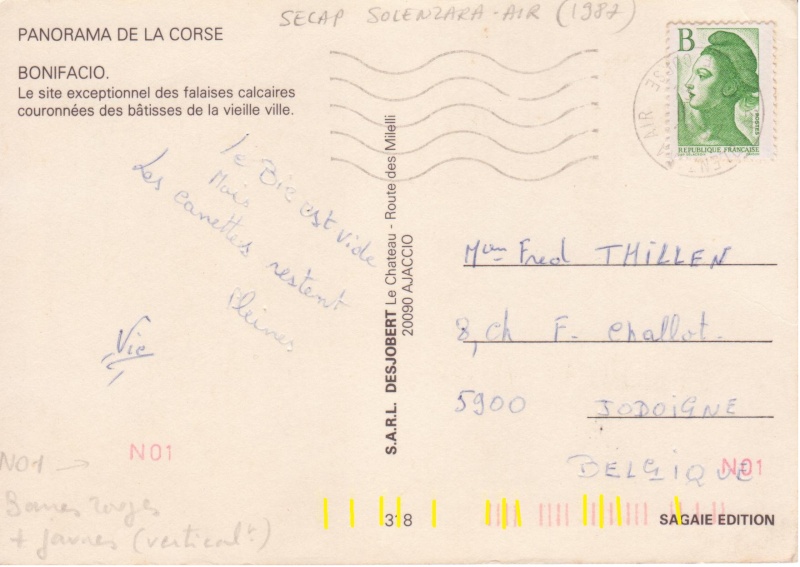 SECAP SOLENZARA-AIR (1987)
PANORAMA DE LA CORSE
BONIFACIO.
Le site exceptionnel des falaises calcaires
couronnées des bâtisses de la vieille ville.
B
POSTES
REPUBLIQUE FRANCAISE
le Bic est vide
Mais
Les canettes restent
pleines
Vic
S.A.R.L. DESJOBERT Le Chateau - Route des Milelli
20090 AJACCIO
Fred THILLEN
8, ch F. Challot.
5900 JODOIGNE
BELGIQUE
N01
N01 →
N01
Barres rouges
+ jaunes (vertical^t)
318
SAGAIE EDITION